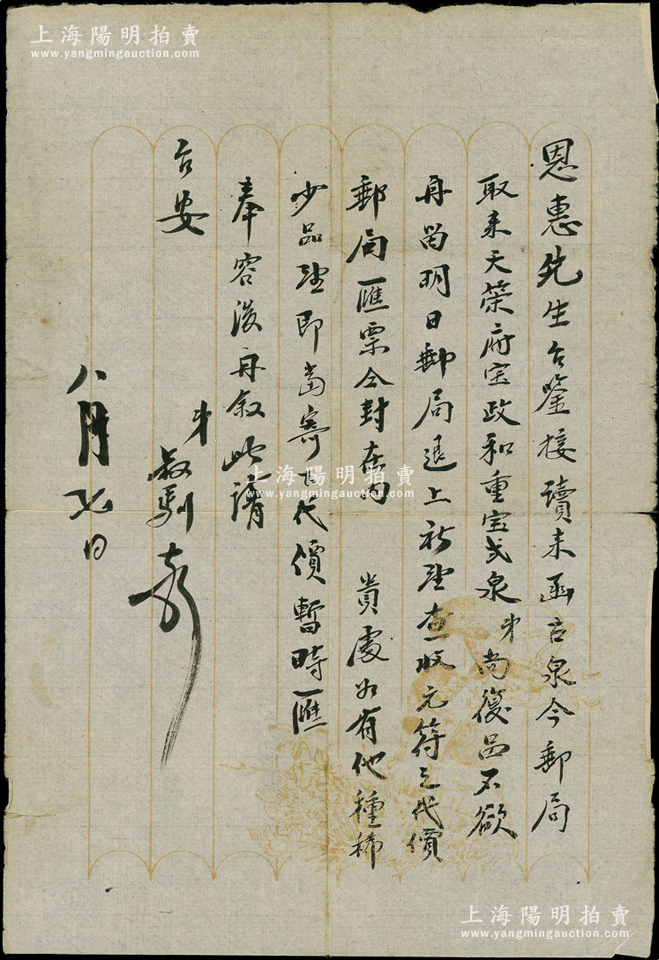 恩惠先生台鑒接讀來函古泉今郵局
取來天策府宝政和重宝弍泉弟尚復品不欲
再留明日郵局退上祈望查收元符之代價
郵局匯票今封在內 貴處如有他種稀
少品望即當寄下代價暫時匯
奉容後再敘此請
台安
弟 馴
八月七日
上海陽明拍賣
www.yangmingauction.com
上海陽明拍賣
www.yangmingauction.com
上海陽明拍賣
www.yangmingauction.com